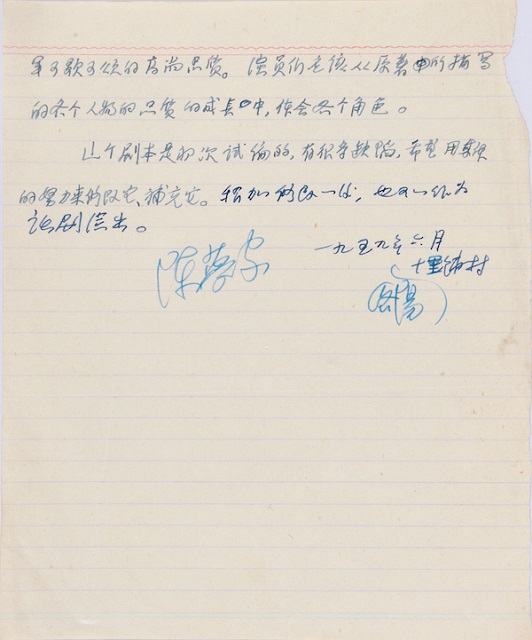 可歌可颂的高尚品质。演员们应该从原著中所描写
的各个人物的品质的成长中,体会各个角色。
这个剧本是初次试编的,有很多缺陷,希望用集体
的努力来修改它、补充它。稍加修改一下,也可以作为
话剧演出。
一九五九年六月
十里铺村
陈